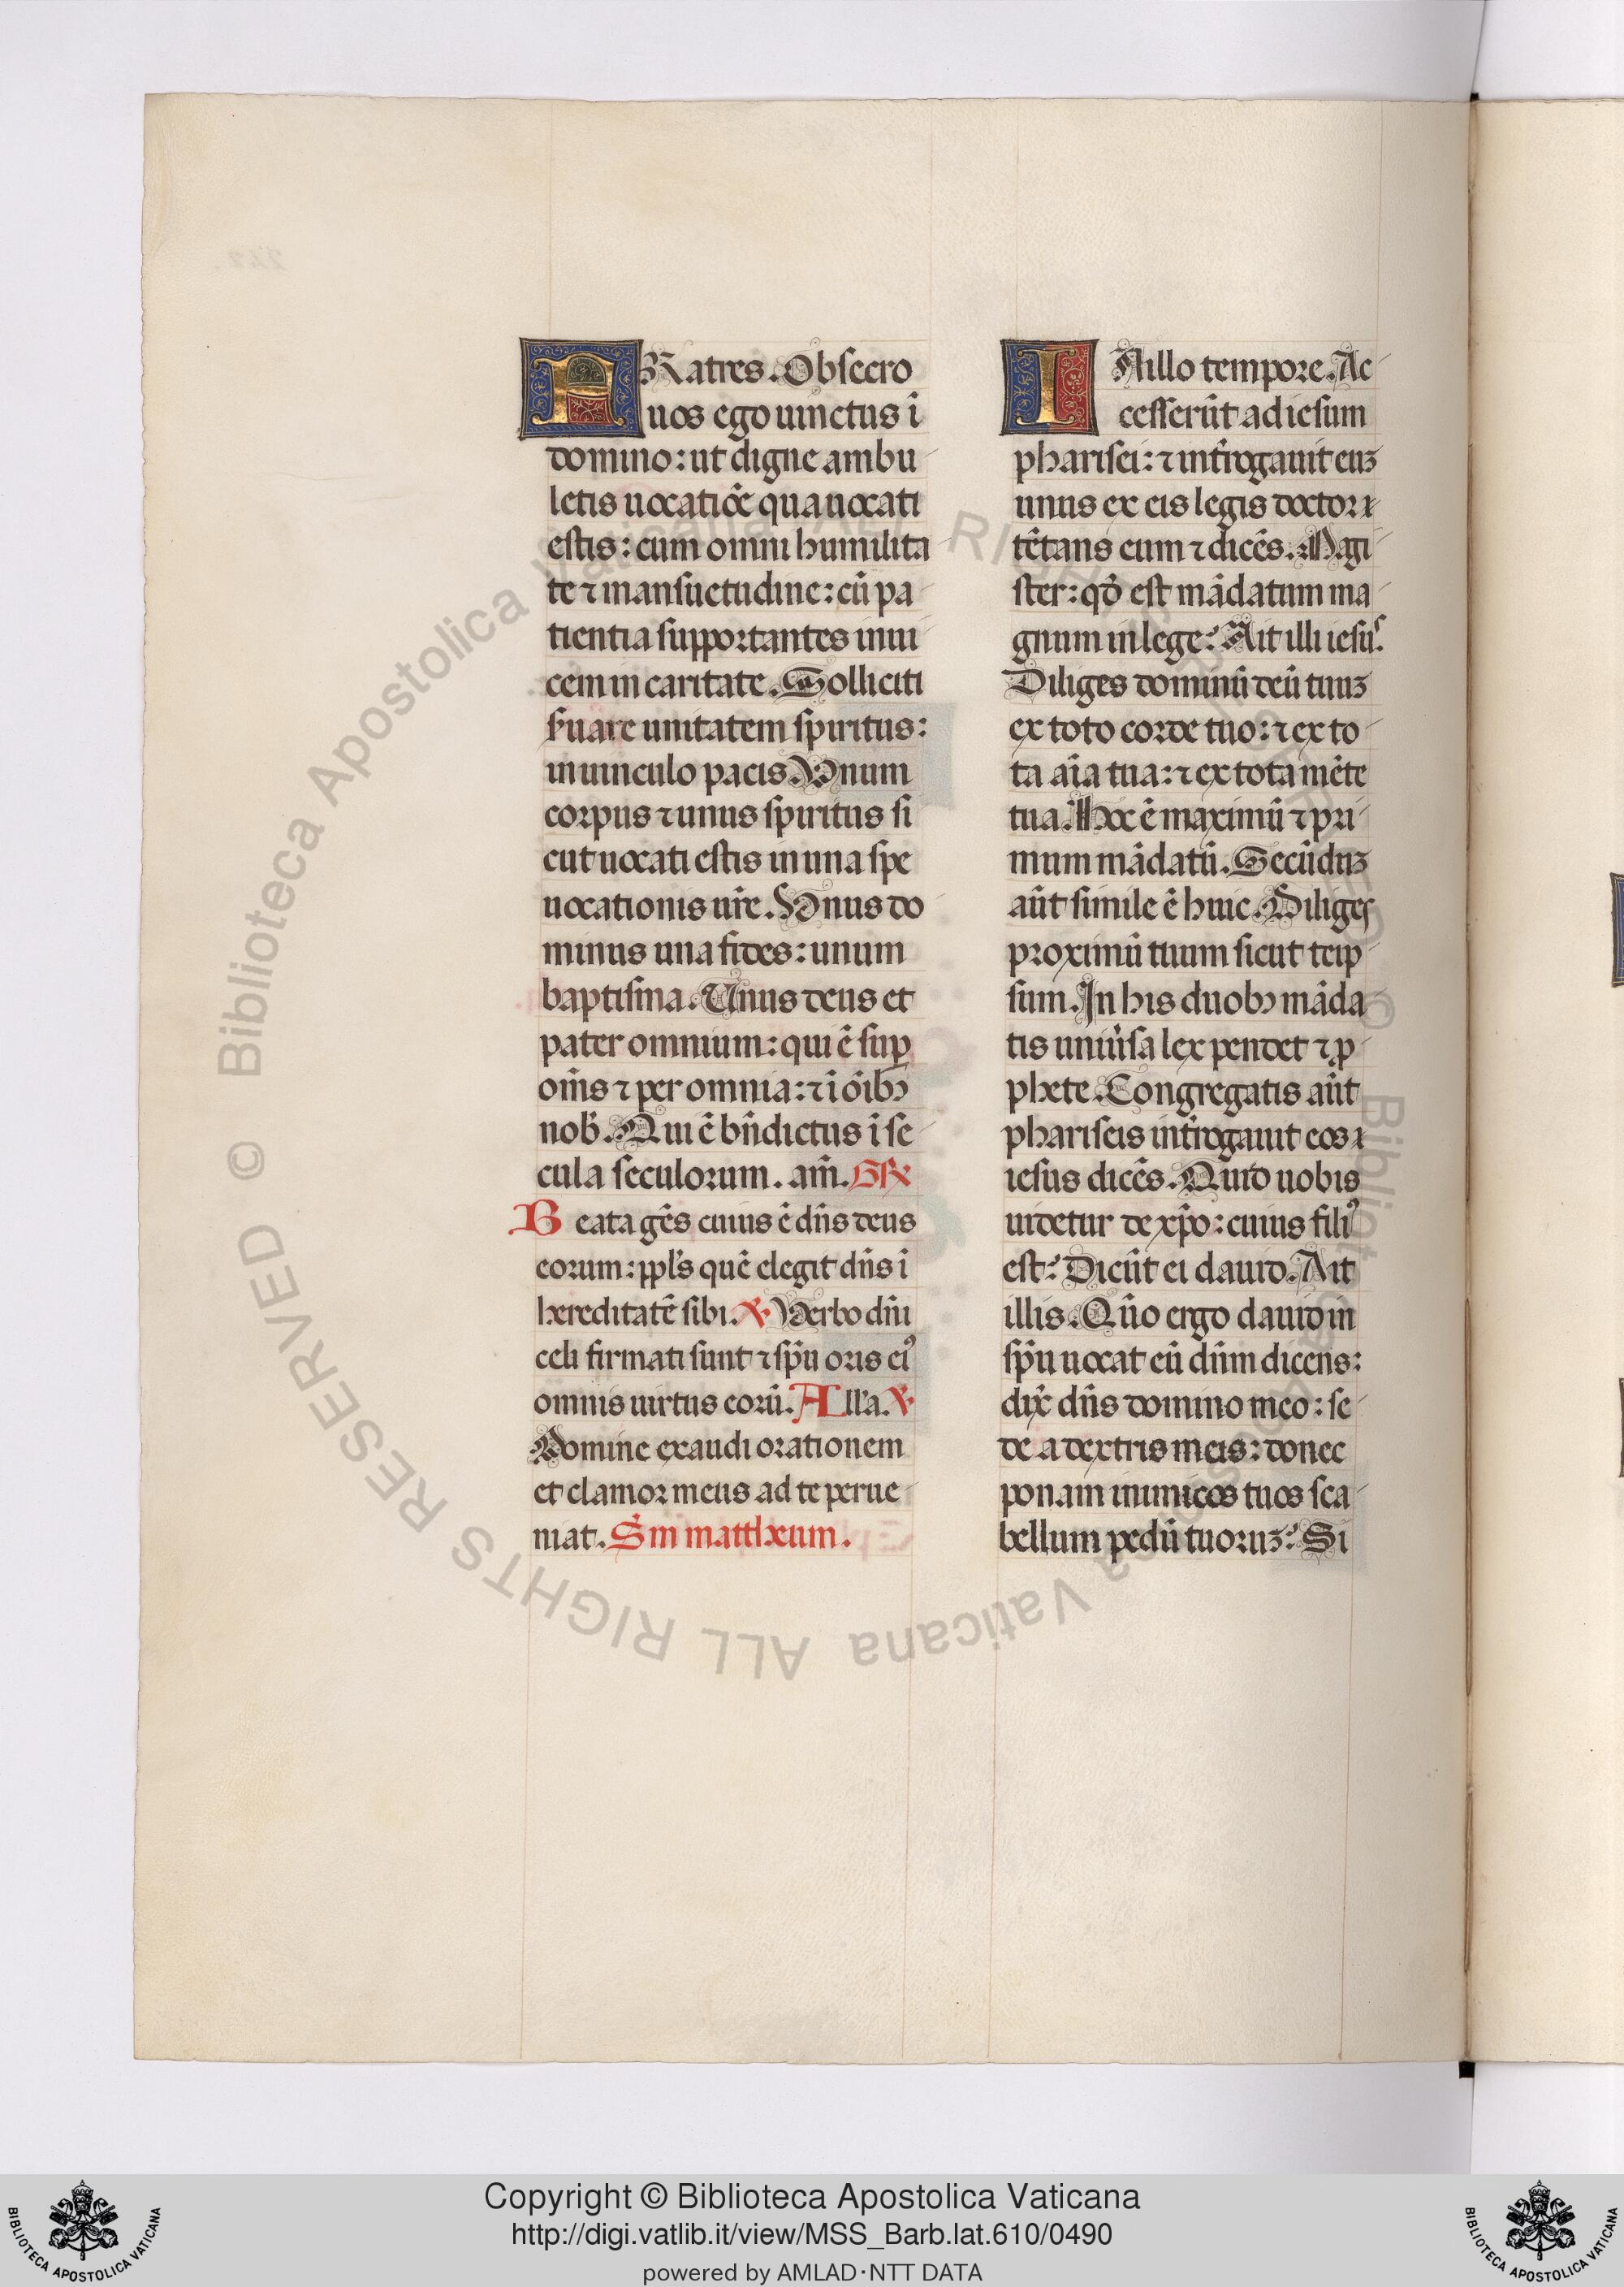 FRatres. Obsecro
uos ego uinctus ī
domino: ut digne ambu
letis uocatiōe qua uocati
estis: cum omni humilita
te ⁊ mansuetudine: cū pa
tientia supportantes inui
cem in caritate. Solliciti
s̄uare unitatem spiritus:
in uinculo pacis. Vnum
corpus ⁊ unus spiritus si
cut uocati estis in una spe
uocationis ur̄e. Vnus do
minus una fides: unum
baptisma. Unus deus et
pater omnium: qui ē sup̄
om̄s ⁊ per omnia: ⁊ ī oīb
nob̄. Qui ē bn̄dictus ī se
cula seculorum. am̄. Gr̄
Beata gēs cuius ē dn̄s deus
eorum: ppl̄s quē elegit dn̄s ī
hereditatē sibi. V Verbo dn̄i
celi firmati sunt ⁊ sp̄u oris ei⁹
omnis uirtus eorū. All̄a. V
Domine exaudi orationem
et clamor meus ad te perue
niat. Sm̄ mattheum.
IN illo tempore. Ac
cesserūt ad iesum
pharisei: ⁊ int̄rogauit euꝫ
unus ex eis legis doctor
tētans eum ⁊ dicēs. Magi
ster: qd̄ est mādatum ma
gnum in lege? Ait illi iesūs.
Diliges dominū deū tuuꝫ
ex toto corde tuo: ⁊ ex to
ta aīa tua: ⁊ ex tota mēte
tua. Hoc ē maximū ⁊ pri
mum mādatū. Secūduꝫ
aūt simile ē huic. Diliges
proximū tuum sicut teip
sum. In his duob māda
tis uniūsa lex pendet ⁊ p̄
phete. Congregatis aūt
phariseis int̄rogauit eos
iesus dicēs. Quid uobis
uidetur de xp̄o: cuius fili⁹
est? Dicūt ei dauid. Ait
illis. Quō ergo dauid in
sp̄u uocat eū dn̄m dicens:
dix̄ dn̄s domino meo: se
de a dextris meis: donec
ponam inimicos tuos sca
bellum pedū tuoruꝫ? Si
© Biblioteca Apostolica Vaticana ALL RIGHTS RESERVED
Copyright © Biblioteca Apostolica Vaticana
http://digi.vatlib.it/view/MSS_Barb.lat.610/0490
powered by AMLAD·NTT DATA
BIBLIOTECA APOSTOLICA VATICANA
BIBLIOTECA APOSTOLICA VATICANA